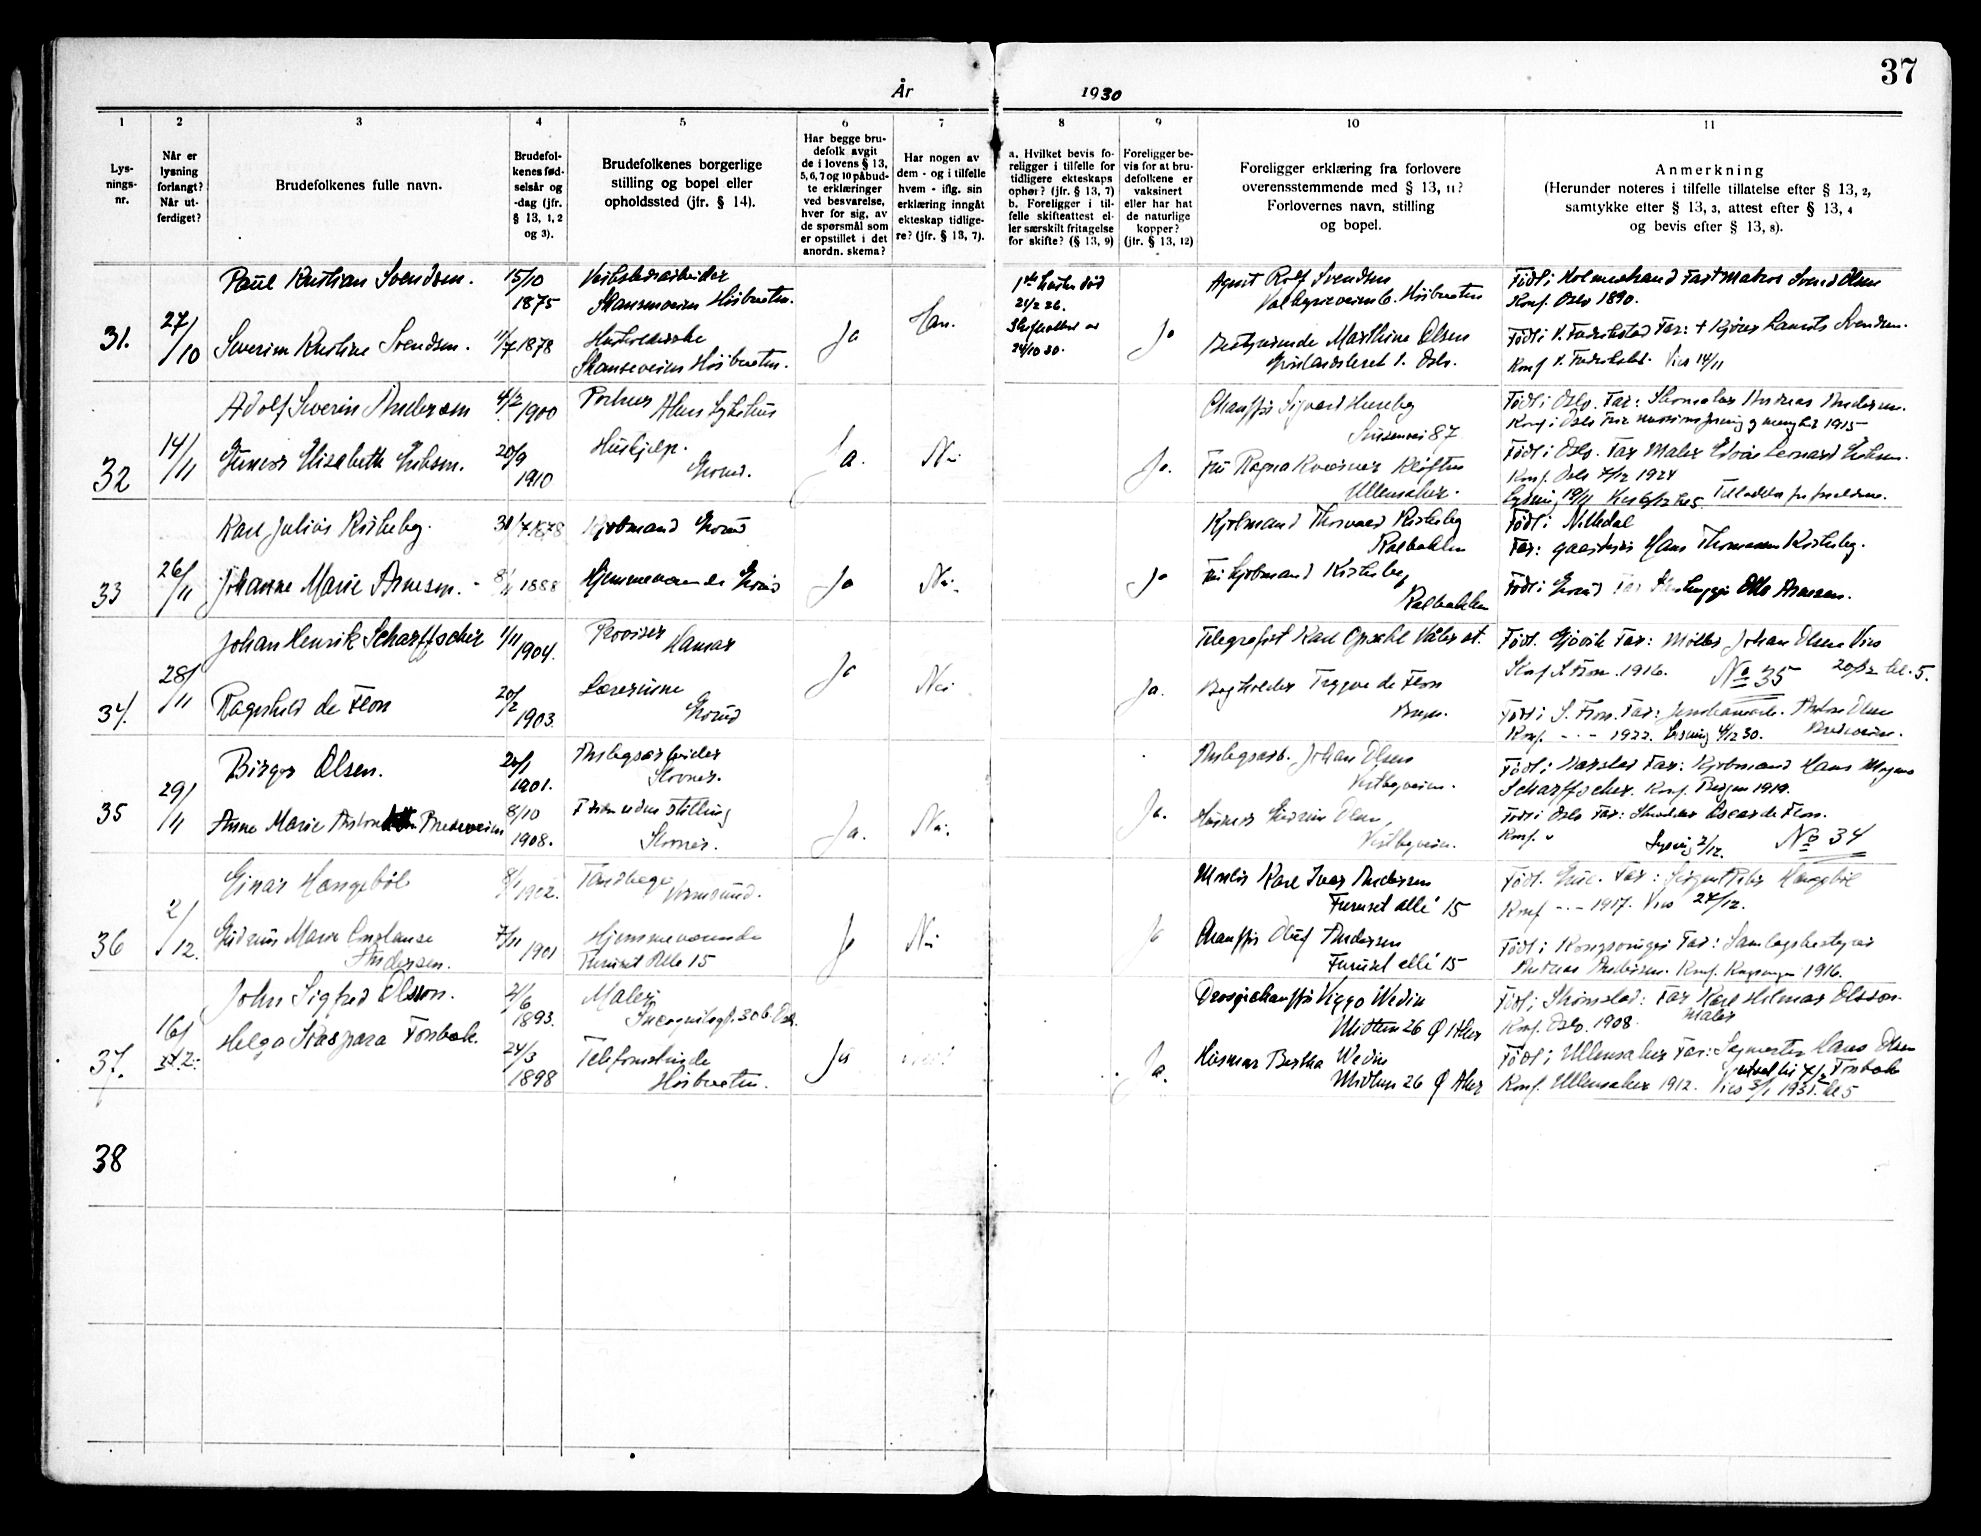 37
År 1930
1 2 3 4 5 6 7 8 9 10 11
Lys-
nings-
nr.
Når er
lysning
forlangt?
Når ut-
ferdiget?
Brudefolkenes fulle navn.
Brudefol-
kenes fød-
selsår og
-dag (jfr.
§ 13, 1, 2
og 3).
Brudefolkenes borgerlige
stilling og bopel eller
opholdssted (jfr. § 14).
Har begge bru-
defolk avgit
de i lovens § 13,
5, 6, 7 og 10 påbud-
te erklæringer
ved besvarelse,
hver for sig, av
de spørsmål som
er opstillet i det
anordn. skema?
Har nogen av
dem - og i tilfelle
hvem - iflg. sin
erklæring inngåt
ekteskap tidlige-
re? (jfr. § 13, 7).
a. Hvilket bevis fo-
religger i tilfelle for
tidligere ekteskaps
ophør? (jfr. § 13, 7)
b. Foreligger i til-
felle skifteattest el-
ler særskilt fritagelse
for skifte? (§ 13, 9)
Foreligger be-
vis for at bru-
defolkene er
vaksinert
eller har hat
de naturlige
kopper?
(jfr. § 13, 12)
Foreligger erklæring fra forlovere
overensstemmende med § 13, 11?
Forlovernes navn, stilling
og bopel.
Anmerkning
(Herunder noteres i tilfelle tillatelse efter § 13, 2,
samtykke efter § 13, 3, attest efter § 13, 4
og bevis efter § 13, 8).
31.
27/10
Paul Kristian Svendsen.
15/10
1875
Skansenveien Høibraaten.
Severine Kristine Svendsen.
11/7 1878
Husholderske
Skanseveien Høibraaten.
Ja
Han.
21/2 26.
24/10 30.
Ja
Agent Rolf Svendsen
Valkyrieveien 6. Høibraaten
Bestyrerinde Marthine Olsen
Grønlandsleret 1. Oslo.
Født i Holmestrand Far: Matros Svend Olsen
Konf. Oslo 1890.
Født i V. Fredrikstad Far: + Laurits Svendsen.
Konf V. Fredrikstad. Vies 14/11
32
14/11
Adolf Severin Andersen
4/2 1900
Portner Aker Sykehus
Gunvor Elisabeth
20/9
1910
Hushjelp.
Grorud.
Ja.
Nei
Ja.
Chauffør Sigvard
87
Fru Ragna Kværner Kløften
Ullensaker.
Født i Oslo. Far: Andreas Andersen.
1915
Født i Oslo. Far Maler Edvin Leonard
Konf. Oslo 1924
Lysning 19/11
33
26/11
Karl Julius Kirkeby.
1878
Kjøbmand Grorud
Johanne Marie Arnesen.
8/11 1888
Hjemmeværende Grorud
Ja
Nei.
Ja
Kjøbmand Thorvald Kirkeby
Kalbakken
Fru Kjøbmand Kirkeby
Kalbakken
Født i Nittedal
Far: gaardbruger Hans Thomassen Kirkeby.
Født i Grorud Far Otto Arnesen.
34.
28/11
Johan Henrik Scharffscher
1/11 1904.
Provisor
Hamar
Ragnhild de Flon
20/2
1903.
Lærerinne
Grorud
Ja
Nei
Ja.
Telegrafist Karl Opsahl Våler st.
Bogholder Trygve de Flon
Født. Gjøvik Far: Møller Johan Olsen Vies
Konf. S. Fron. 1916. No 35 20/12 kl. 5.
Født i S. Fron. Far: Anton Olsen
Konf. - - - 1922. Lysning 4/12 30. Brudeveien.
35
29/11
Birger Olsen.
20/1
1901.
Anlegsarbeider
Slovner.
Anne Marie
8/10
1908.
Frøken uden stilling
Slovner.
Ja.
Nei.
Ja.
Anlegsarb. Johan Olsen
Vestbyveien.
Husmor Gudrun Olsen
Vestbyveien.
Født i Harstad Far: Kjøbmand Hans Magnus
Scharffscher. Konf. Bergen 1919.
Født i Oslo Far: Oscar de Flon.
Konf. "
Lysning 2/12. No 34
36
2/12.
Einar Haugebøl
8/1 1902.
Tandlæge
Vormsund.
Gudrun Marie Constanse
Andersen.
7/11 1901
Hjemmeværende
Furuset Alle 15
Ja
Nei
Ja
Murer Karl Ivar Andersen
Furuset alle' 15
Chauffør Oluf Andersen
Furuset alle' 15
Født. Grue. Far: Haugebøl
Konf - - - 1917. Vies 24/12.
Født i Kongsvinger Far: Samlagsbestyrer
Andreas Andersen. Konf. Kongsvinger 1916.
37.
16/12.
John Sigfred Olsson.
2/6
1893.
Maler
Incognitogt. 30 b. Oslo.
Helga Kaspara Fosbak.
24/3
1898
Telefonistinde
Høibraaten.
Ja
Nei
Ja.
Drosjechauffør Viggo Wedin
26 Ø Aker
Husmor Bertha Wedin
26 Ø Aker
Født i Strømstad: Far Karl Hilmar Olsson
Maler
Konf. Oslo. 1908.
Født i Ullensaker Far: Hans Olsen
Fosbak
Konf. Ullensaker 1912. Vies 3/1 1931. kl 5
38